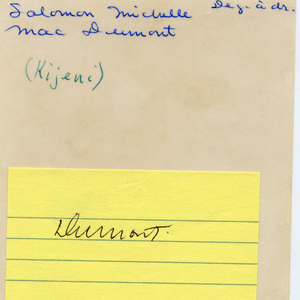 Salomon Michelle Deg. à dr.
Mac Dumont
(Kijeni)
Dumont.